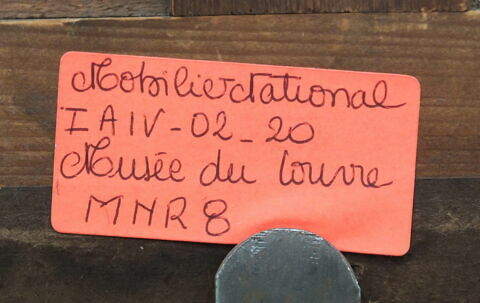 Mobilier National
IAIV-02-20
Musée du Louvre
MNR 8